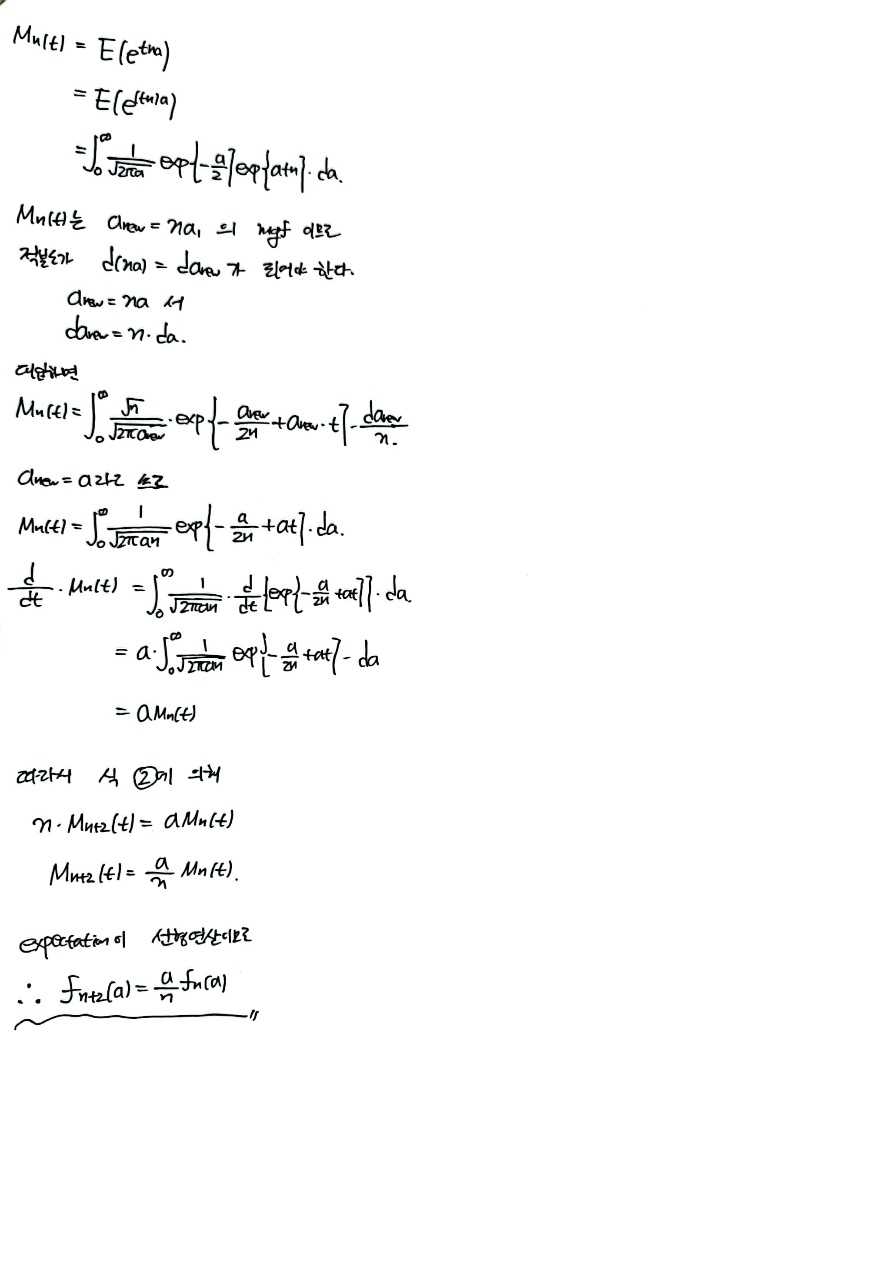 Mn(t) = E(e^{tna})
= E(e^{(tn)a})
= ∫_0^∞ 1/√(2πa) exp{-a/2} exp{atn}·da.
Mn(t)는 a_{new} = na, 의 mgf 이므로
적분도가 d(na) = da_{new} 가 되어야 한다.
a_{new} = na 서
da_{new} = n·da.
대입하면
Mn(t) = ∫_0^∞ √n/√(2πa_{new}) ·exp{-a_{new}/2n + a_{new}·t}·da_{new}/n.
a_{new} = a라고 쓰로
Mn(t) = ∫_0^∞ 1/√(2πan) exp{-a/2n + at}·da.
d/dt · Mn(t) = ∫_0^∞ 1/√(2πan) · d/dt {exp{-a/2n + at}}·da
= a·∫_0^∞ 1/√(2πan) exp{-a/2n + at}·da
= aMn(t)
따라서 식 ②에 의해
n·M_{n+2}(t) = aMn(t)
M_{n+2}(t) = a/n Mn(t).
expectation이 선형연산이므로
∴ f_{n+2}(a) = a/n fn(a) 〃